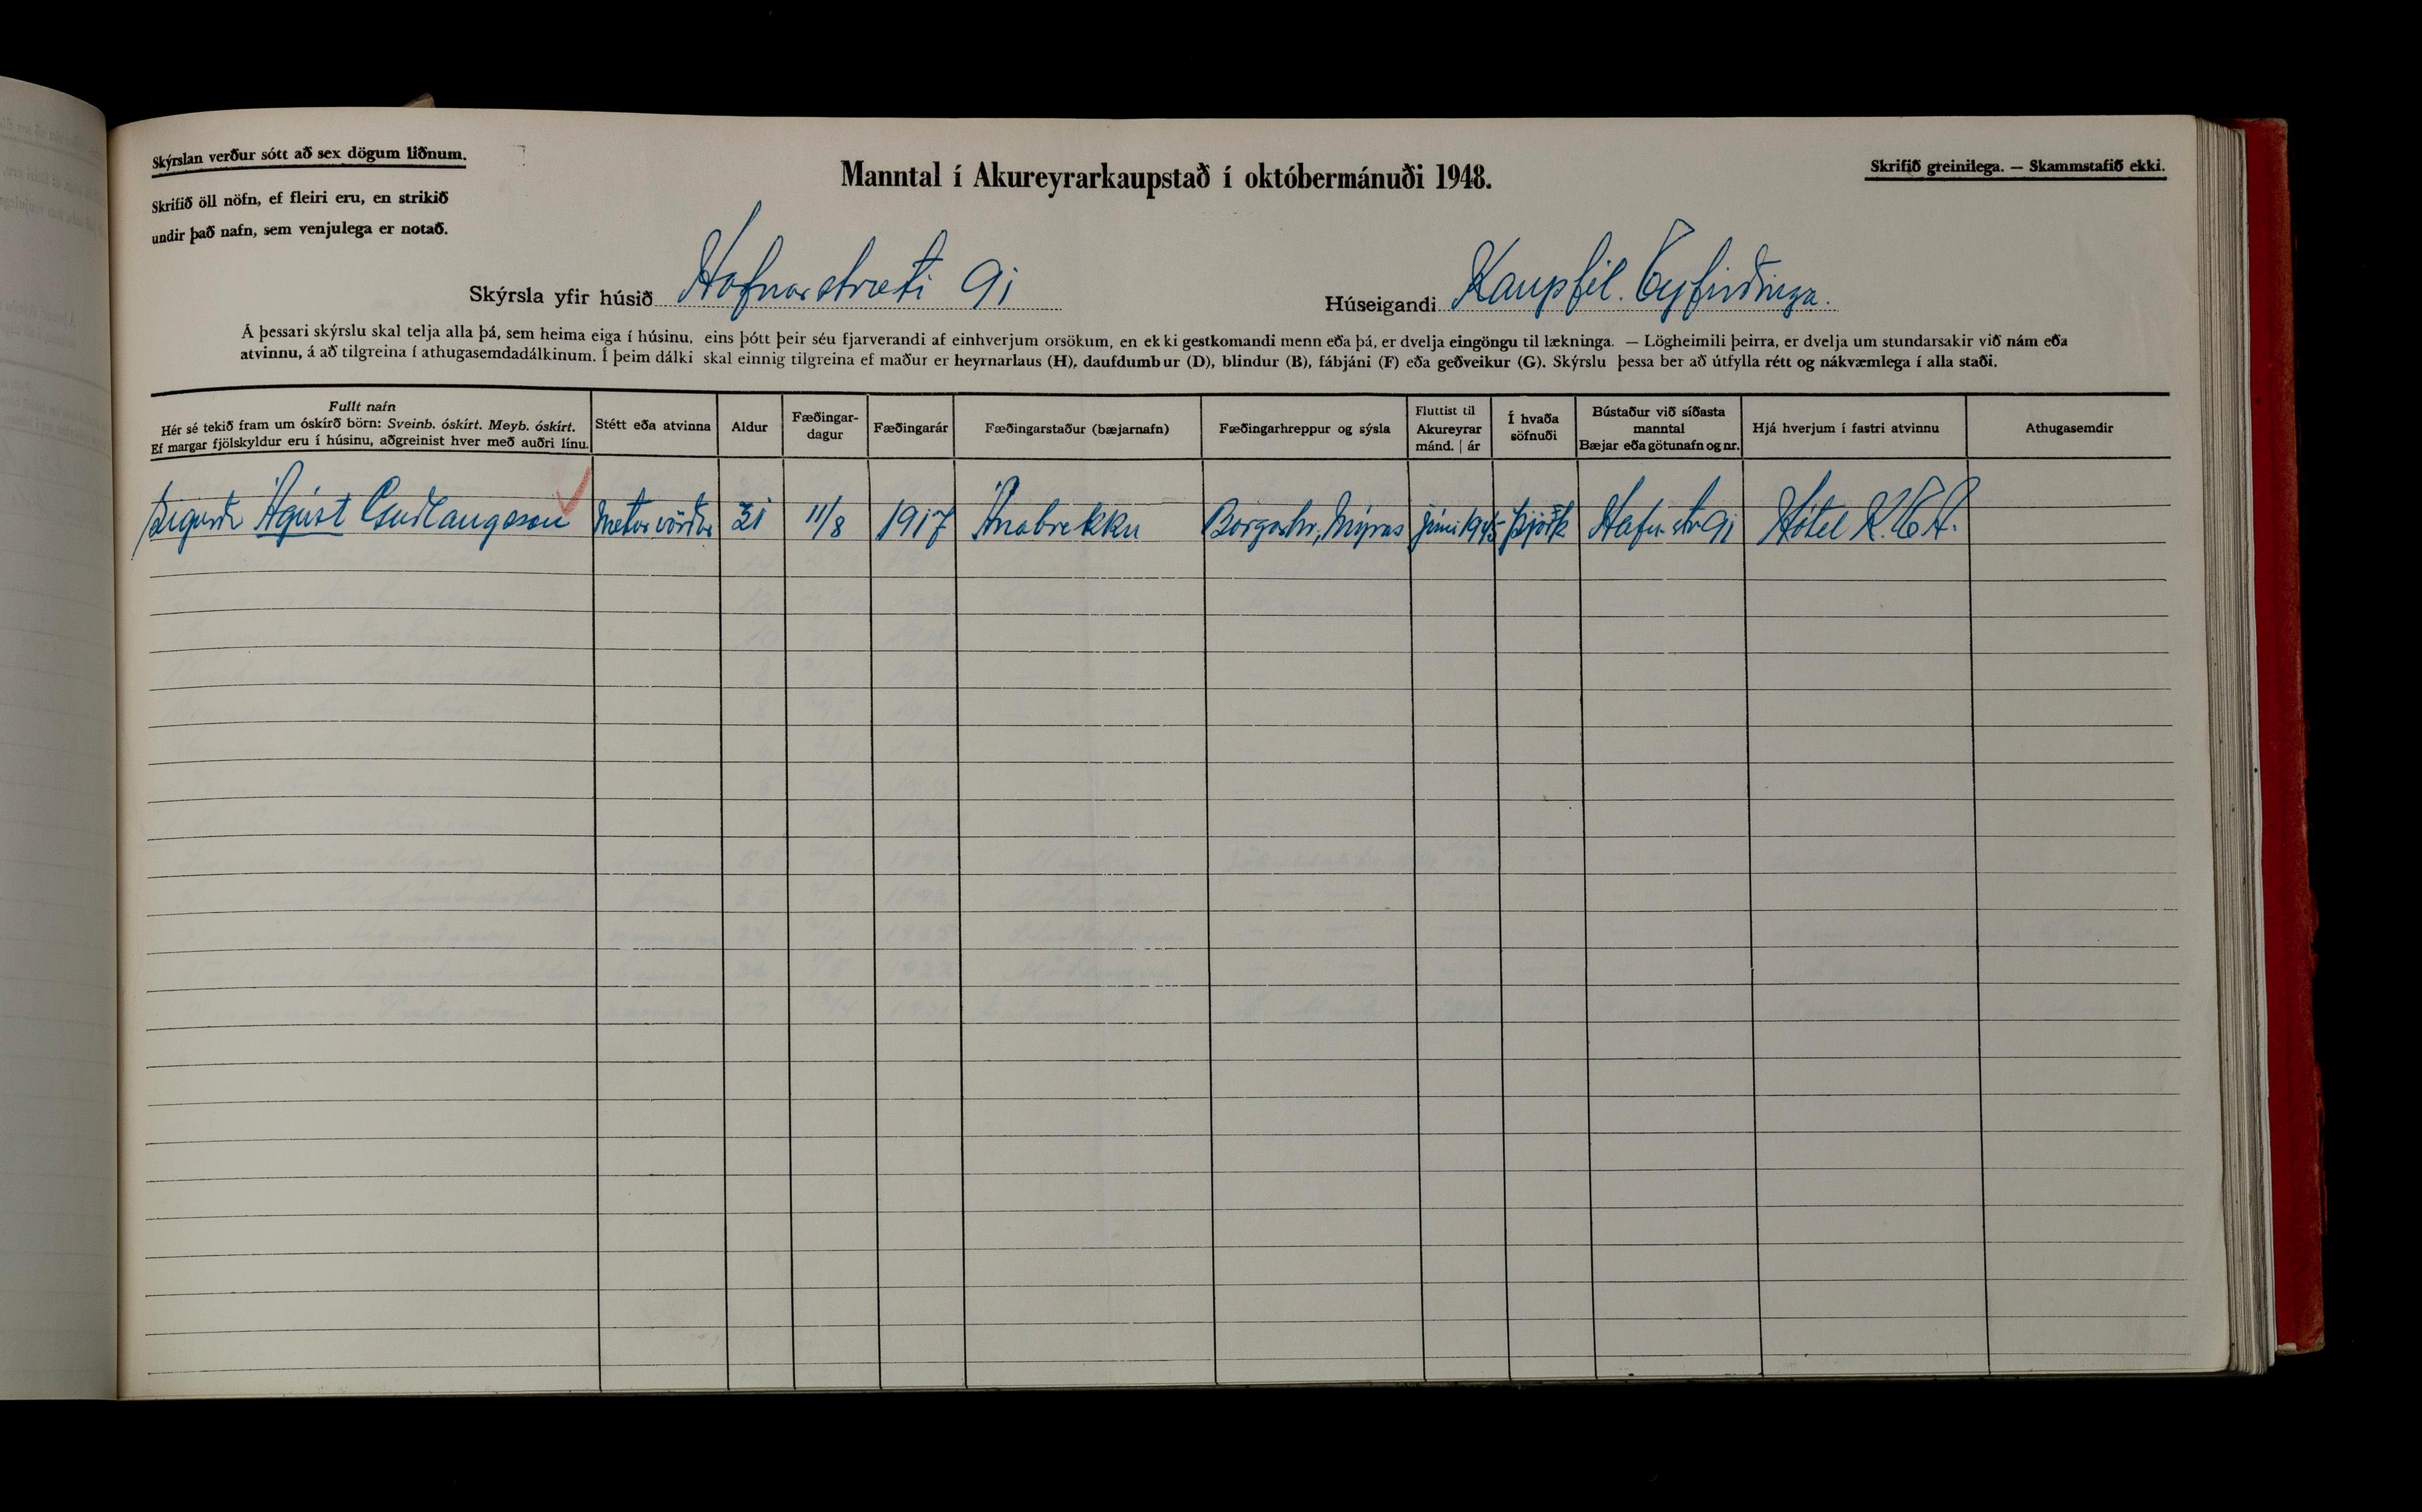 Skýrslan verður sótt að sex dögum liðnum.
Skrifið öll nöfn, ef fleiri eru, en strikið
undir það nafn, sem venjulega er notað.
Manntal í Akureyrarkaupstað í októbermánuði 1948.
Skrifið greinilega. — Skammstafið ekki.
Skýrsla yfir húsið Hafnarstræti 91
Húseigandi Kaupfél. Eyfirðinga.
Á þessari skýrslu skal telja alla þá, sem heima eiga í húsinu, eins þótt þeir séu fjarverandi af einhverjum orsökum, en ekki gestkomandi menn eða þá, er dvelja eingöngu til lækninga. — Lögheimili þeirra, er dvelja um stundarsakir við nám eða
atvinnu, á að tilgreina í athugasemdadálkinum. Í þeim dálki skal einnig tilgreina ef maður er heyrnarlaus (H), daufdumbur (D), blindur (B), fábjáni (F) eða geðveikur (G). Skýrslu þessa ber að útfylla rétt og nákvæmlega í alla staði.
Fullt nafn
Hér sé tekið fram um óskírð börn: Sveinb. óskírt. Meyb. óskírt.
Ef margar fjölskyldur eru í húsinu, aðgreinist hver með auðri línu.
Stétt eða atvinna
Aldur
Fæðingar-
dagur
Fæðingarár
Fæðingarstaður (bæjarnafn)
Fæðingarhreppur og sýsla
Fluttist til
Akureyrar
mánd. | ár
Í hvaða
söfnuði
Bústaður við síðasta
manntal
Bæjar eða götunafn og nr.
Hjá hverjum í fastri atvinnu
Athugasemdir
Sigurður Ágúst Guðlaugsson Næturvörður 31 11/8 1917 Ánabrekku Borgarhr, Mýras júní 1945 Þjóðk Hafn.str 91 Hótel K.E.A.